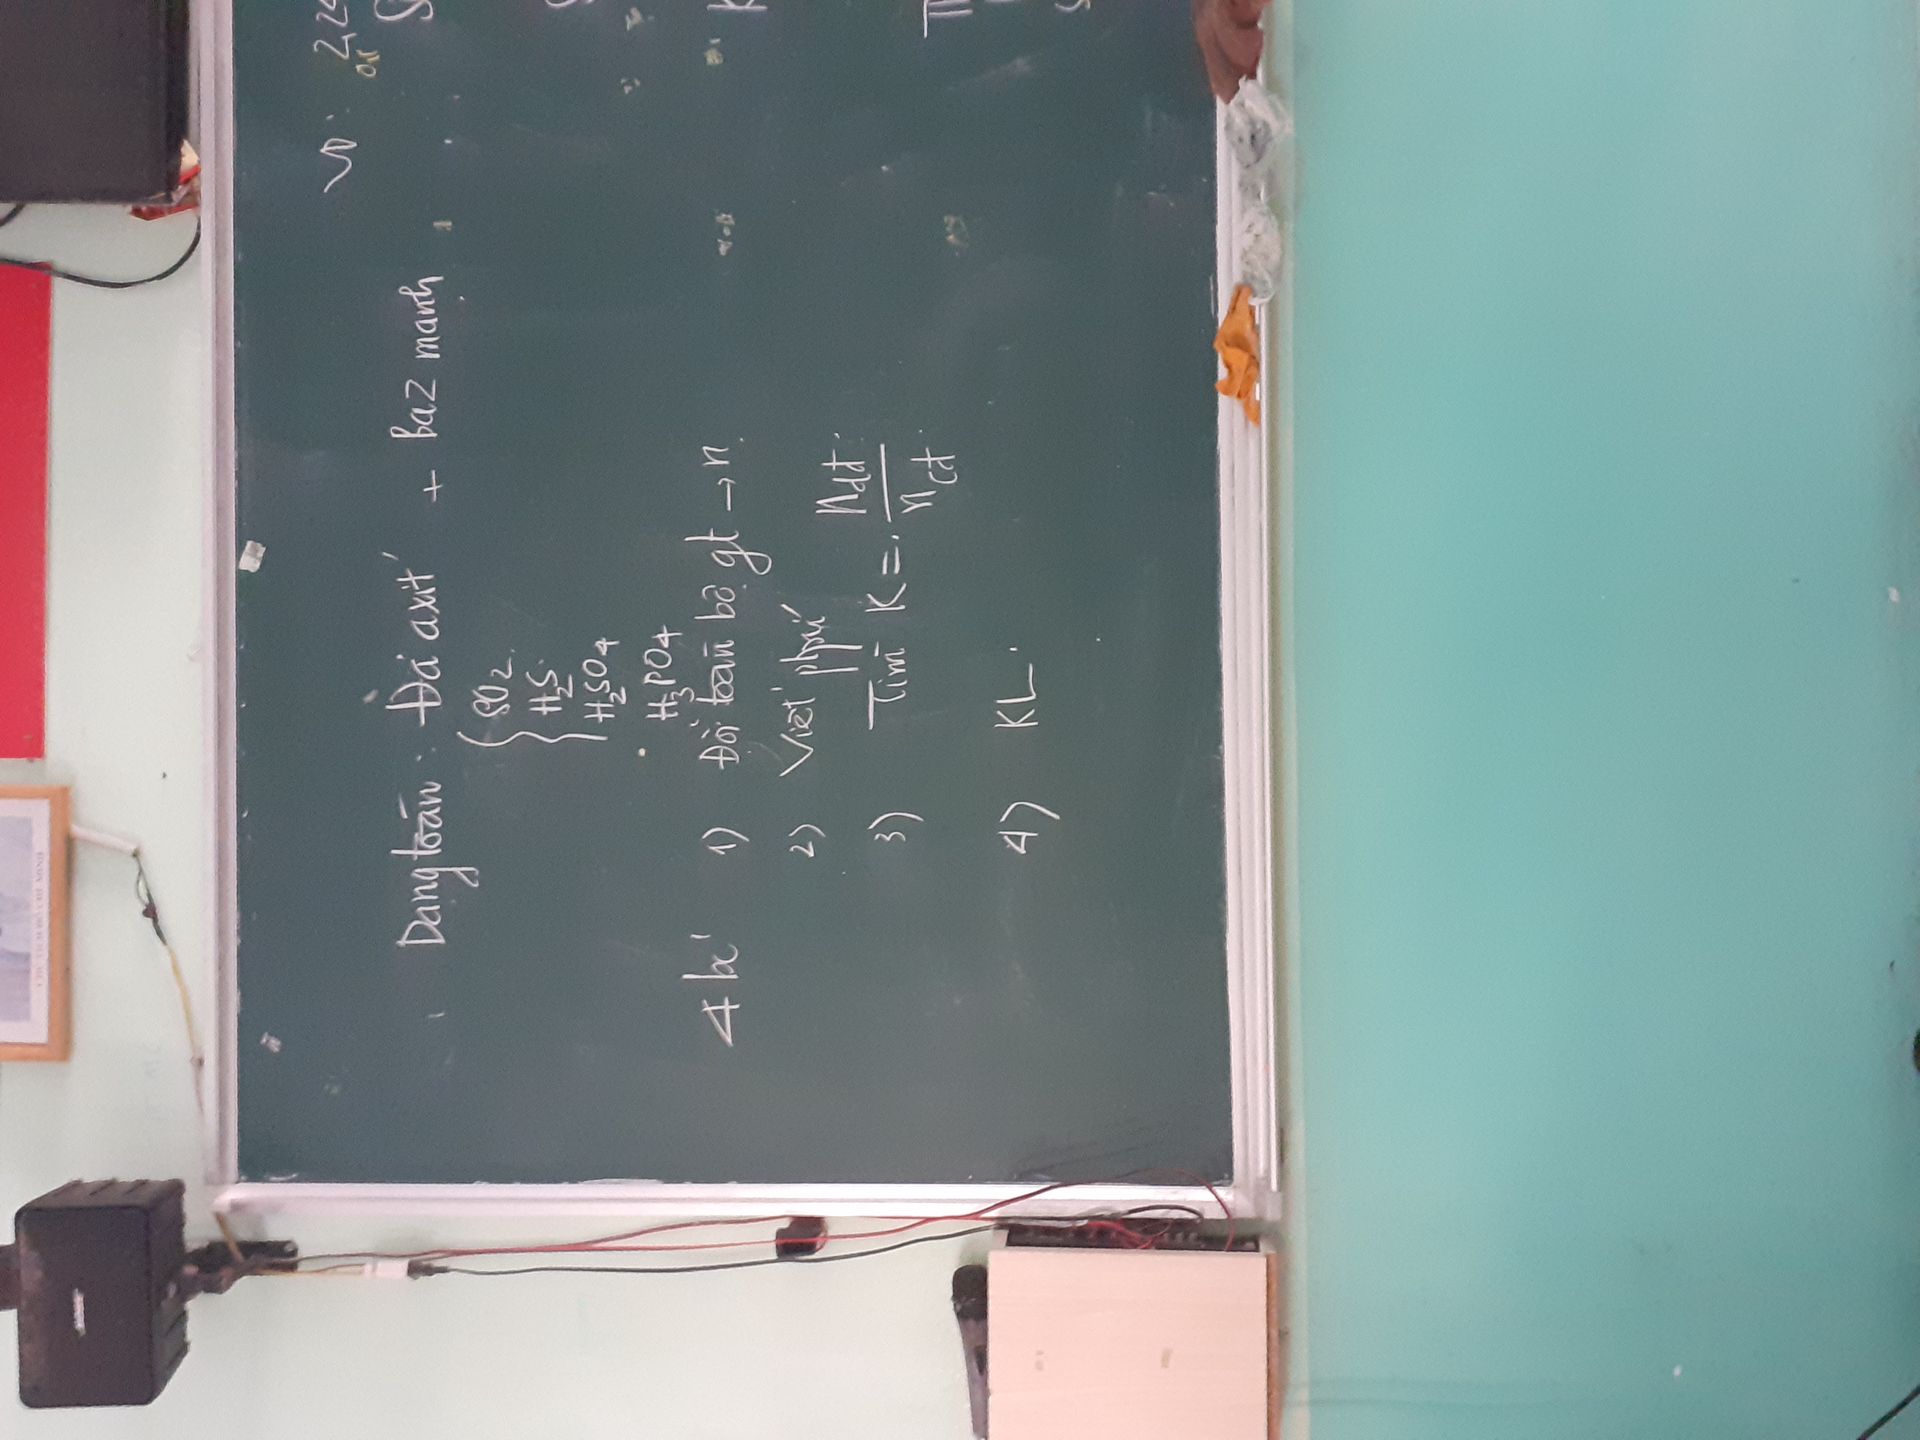 Dạng toán: Đa axit + baz mạnh
SO2
H2S
H2SO4
H3PO4
4 bc' 1) Đổi toàn bộ gt → n
2) Viết ptpứ
3) Tìm K = n đt / n ct
4) KL.
VD: 2,24